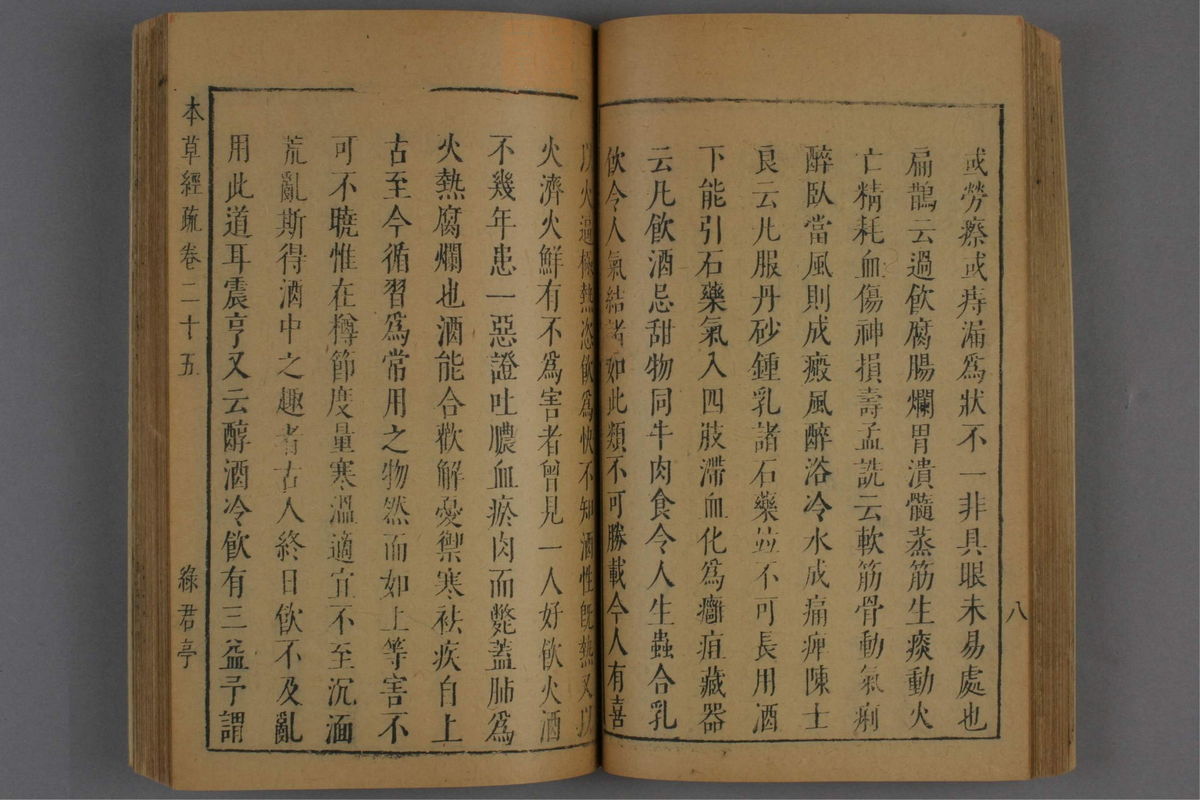 或勞瘵或痔漏為狀不一非具眼未易處也
扁鵲云過飲腐腸爛胃潰髓蒸筋生痰動火
亡精耗血傷神損壽孟詵云軟筋骨動氣痢
醉臥當風則成癜風醉浴冷水成痛痺陳士
良云凡服丹砂鍾乳諸石藥並不可長用酒
下能引石藥氣入四肢滯血化為癰疽藏器
云凡飲酒忌甜物同牛肉食令人生蟲合乳
飲令人氣結諸如此類不可勝載今人有喜
以火逼極熱恣飲為快不知酒性既熱又以
火濟火鮮有不為害者曾見一人好飲火酒
不幾年患一惡證吐膿血瘀肉而斃蓋肺為
火熱腐爛也酒能合歡解憂禦寒祛疾自上
古至今循習為常用之物然而如上等害不
可不曉惟在樽節度量寒溫適宜不至沉湎
荒亂斯得酒中之趣者古人終日飲不及亂
用此道耳震亨又云醇酒冷飲有三益予謂
本草經疏卷二十五
綠君亭
八